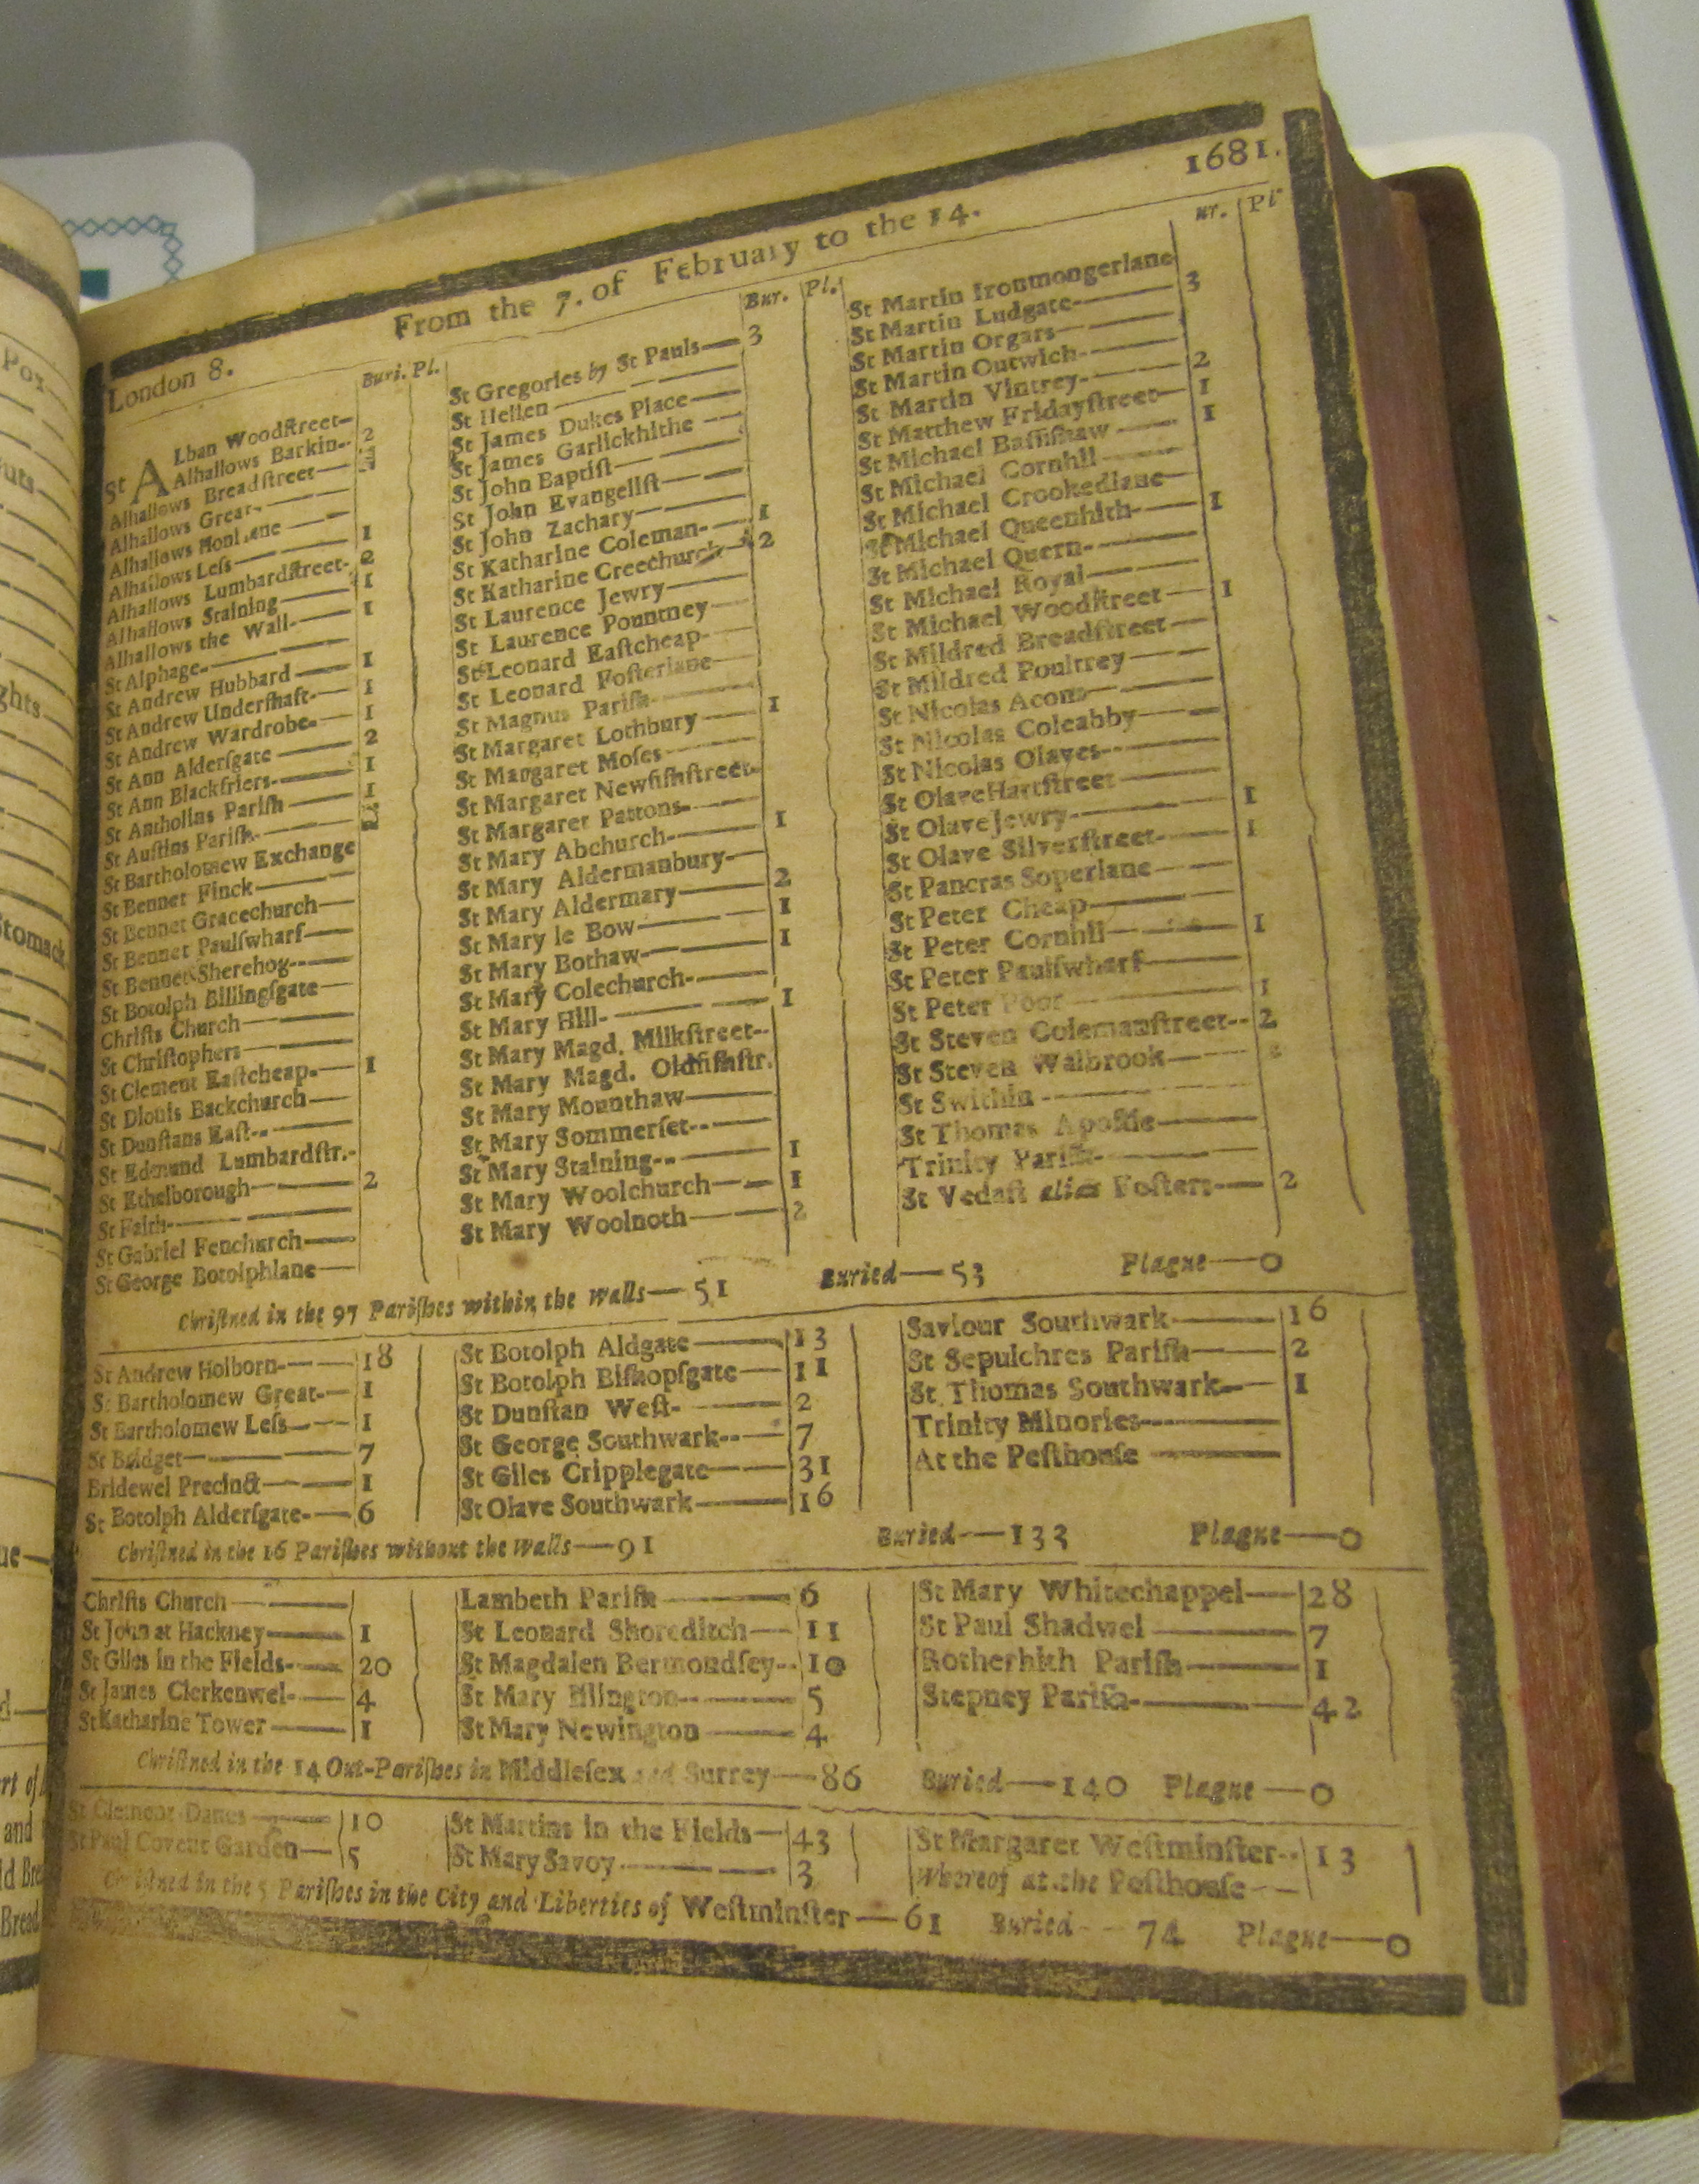 1681.
From the 7. of February to the 14.
London 8.
Buri. Pl.
St ALban Woodſtreet
Alhallows Barkin 2
Alhallows Breadſtreet
Alhallows Great
Alhallows Honilane
Alhallows Leſs 1
Alhallows Lumbardſtreet 2
Alhallows Staining 1
Alhallows the Wall 1
St Alphage
St Andrew Hubbard 1
St Andrew Underſhaft 1
St Andrew Wardrobe 1
St Ann Alderſgate 2
St Ann Blackfriers 1
St Antholins Pariſh 1
St Auſtins Pariſh
St Bartholomew Exchange
St Bennet Finck
St Bennet Gracechurch
St Bennet Paulſwharf
St Bennet Sherehog
St Botolph Billingſgate
Chriſts Church
St Chriſtophers
St Clement Eaſtcheap 1
St Dionis Backchurch
St Dunſtans Eaſt
St Edmund Lumbardſtr.
St Ethelborough 2
St Faith
St Gabriel Fenchurch
St George Botolphlane
Bur. Pl.
St Gregories by St Pauls 3
St Hellen
St James Dukes Place
St James Garlickhithe
St John Baptiſt
St John Evangeliſt
St John Zachary
St Katharine Coleman 1
St Katharine Creechurch 2
St Laurence Jewry
St Laurence Pountney
St Leonard Eaſtcheap
St Leonard Foſterlane
St Magnus Pariſh
St Margaret Lothbury 1
St Margaret Moſes
St Margaret Newfiſhſtreet
St Margaret Pattons
St Mary Abchurch 1
St Mary Aldermanbury
St Mary Aldermary 2
St Mary le Bow 1
St Mary Bothaw 1
St Mary Colechurch
St Mary Hill 1
St Mary Magd. Milkſtreet
St Mary Magd. Oldfiſhſtr.
St Mary Mounthaw
St Mary Sommerſet
St Mary Staining 1
St Mary Woolchurch 1
St Mary Woolnoth 2
ur. Pl
St Martin Ironmongerlane
St Martin Ludgate 3
St Martin Orgars
St Martin Outwich
St Martin Vintrey 2
St Matthew Fridayſtreet 1
St Michael Baſſiſhaw 1
St Michael Cornhil
St Michael Crookedlane
St Michael Queenhith 1
St Michael Quern
St Michael Royal
St Michael Woodſtreet 1
St Mildred Breadſtreet
St Mildred Poultrey
St Nicolas Acons
St Nicolas Coleabby
St Nicolas Olaves
St Olave Hartſtreet
St Olave Jewry 1
St Olave Silverſtreet 1
St Pancras Soperlane
St Peter Cheap
St Peter Cornhil 1
St Peter Paulſwharf
St Peter Poor 1
St Steven Colemanſtreet 2
St Steven Walbrook
St Swithin
St Thomas Apoſtle
Trinity Pariſh
St Vedaſt alias Foſters 2
Chriſtned in the 97 Pariſhes within the Walls—51 Buried—53 Plague—0
St Andrew Holborn 18
St Bartholomew Great 1
St Bartholomew Leſs 1
St Bridget 7
Bridewel Precinct 1
St Botolph Alderſgate 6
St Botolph Aldgate 13
St Botolph Biſhopſgate 11
St Dunſtan Weſt 2
St George Southwark 7
St Giles Cripplegate 31
St Olave Southwark 16
Saviour Southwark 16
St Sepulchres Pariſh 2
St Thomas Southwark 1
Trinity Minories
At the Peſthouſe
Chriſtned in the 16 Pariſhes without the Walls—91 Buried—133 Plague—0
Chriſts Church
St John at Hackney 1
St Giles in the Fields 20
St James Clerkenwel 4
St Katharine Tower 1
Lambeth Pariſh 6
St Leonard Shoreditch 11
St Magdalen Bermondſey 10
St Mary Iſlington 5
St Mary Newington 4
St Mary Whitechappel 28
St Paul Shadwel 7
Rotherhith Pariſh 1
Stepney Pariſh 42
Chriſtned in the 14 Out-Pariſhes in Middleſex and Surrey—86 Buried—140 Plague—0
St Clement Danes 10
St Paul Covent Garden 5
St Martins in the Fields 43
St Mary Savoy 3
St Margaret Weſtminſter 13
Whereof at the Peſthouſe
Chriſtned in the 5 Pariſhes in the City and Liberties of Weſtminſter—61 Buried 74 Plague—0
Pox
uts
ghts
Stomack
ue
d
rt of
and
ld Bre
Bread